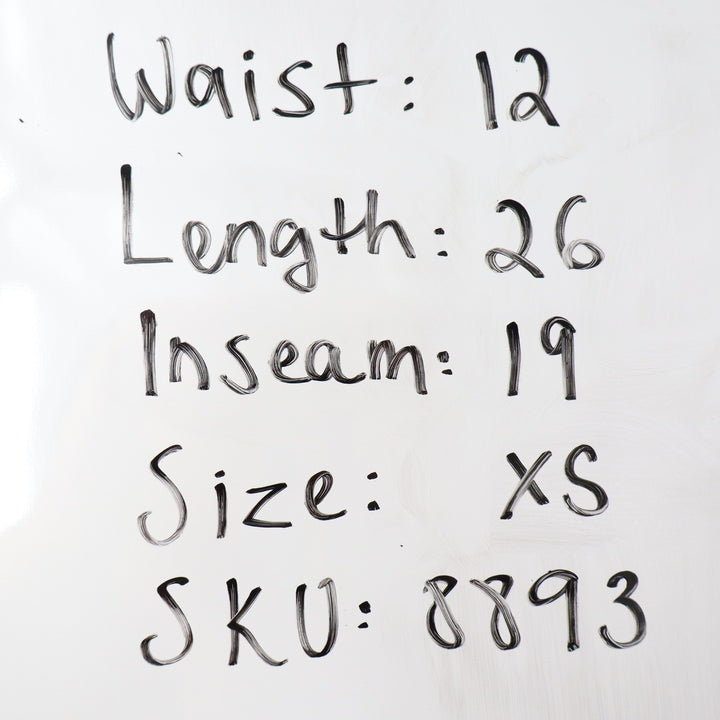 Waist: 12
Length: 26
Inseam: 19
Size: XS
SKU: 8893